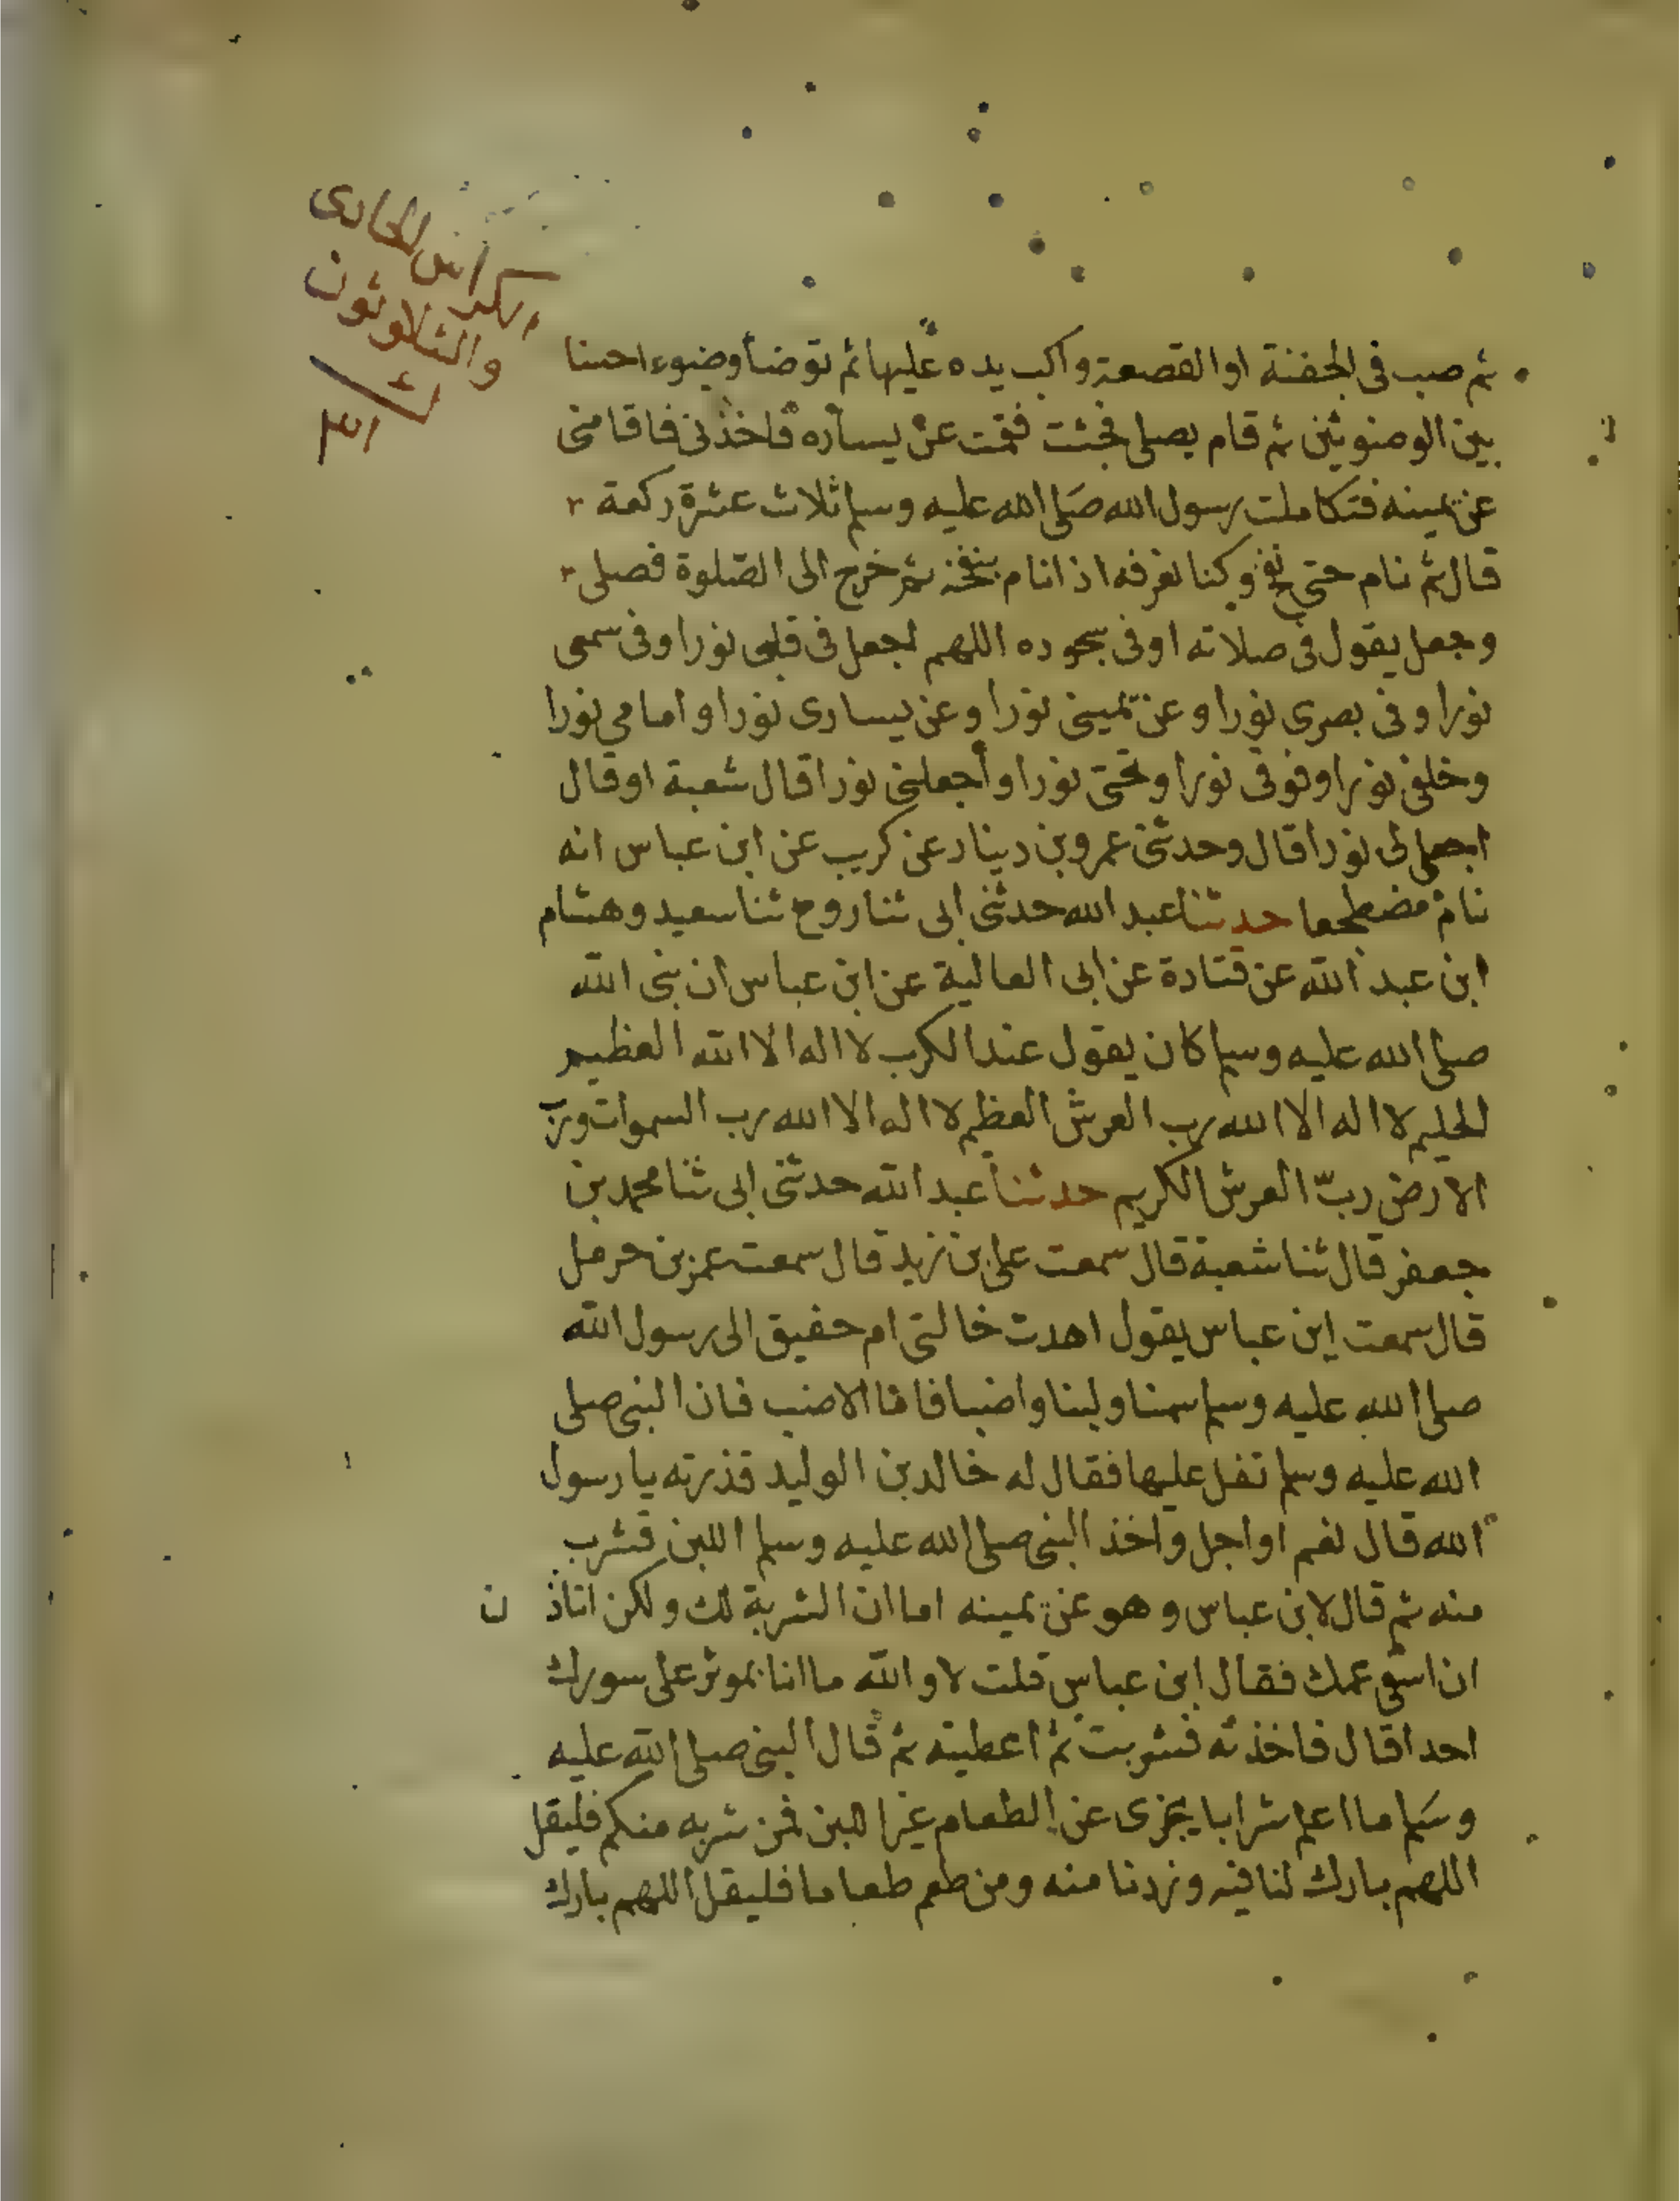 الكراس الحادى
والثلاوثون
ثم صب فى الجفنة او القصعة واكب يده عليها ثم توضأ وضوء احسنا
بين الوضوئين ثم قام يصلى فجئت فقمت عن يساره فاخذنى فاقامنى
عن يمينه فتكاملت رسول الله صلى الله عليه وسلم ثلاث عشرة ركعة
قال ثم نام حتى نفخ وكنا نعرفه اذا نام بنفخه ثم خرج الى الصلوة فصلى
وجعل يقول فى صلاته او فى سجوده اللهم اجعل فى قلبى نورا وفى سمعى
نورا وفى بصرى نورا وعن يمينى نورا وعن يسارى نورا وامامى نورا
وخلفى نورا وفوقى نورا وتحتى نورا واجعلنى نورا قال شعبة او قال
اجعل لى نورا قال وحدثنى عمرو بن دينار عن كريب عن ابن عباس انه
نام مضطجعا حدثنا عبد الله حدثنى ابى ثنا روح ثنا سعيد وهشام
ابن عبد الله عن قتادة عن ابى العالية عن ابن عباس ان نبى الله
صلى الله عليه وسلم كان يقول عند الكرب لا اله الا الله العظيم
الحليم لا اله الا الله رب العرش العظيم لا اله الا الله رب السموات ورب
الارض رب العرش الكريم حدثنا عبد الله حدثنى ابى ثنا محمد بن
جعفر قال ثنا شعبة قال سمعت على بن زيد قال سمعت عمر بن حرمل
قال سمعت ابن عباس يقول اهدت خالتى ام حفيق الى رسول الله
صلى الله عليه وسلم سمنا ولبنا واضبا فاما الاضب فان النبى صلى
الله عليه وسلم تفل عليها فقال له خالد بن الوليد قذرته يا رسول
الله قال نعم او اجل واخذ النبى صلى الله عليه وسلم اللبن فشرب
منه ثم قال لابن عباس وهو عن يمينه اما ان الشربة لك ولكن اتاذ ن
ان اسقى عمك فقال ابن عباس قلت لا والله ما انا بموثر على سورك
احدا قال فاخذته فشربت ثم اعطيته ثم قال النبى صلى الله عليه
وسلم ما اعلم شرابا يجزى عن الطعام غير اللبن فمن شربه منكم فليقل
اللهم بارك لنا فيه وزدنا منه ومن طعم طعاما فليقل اللهم بارك